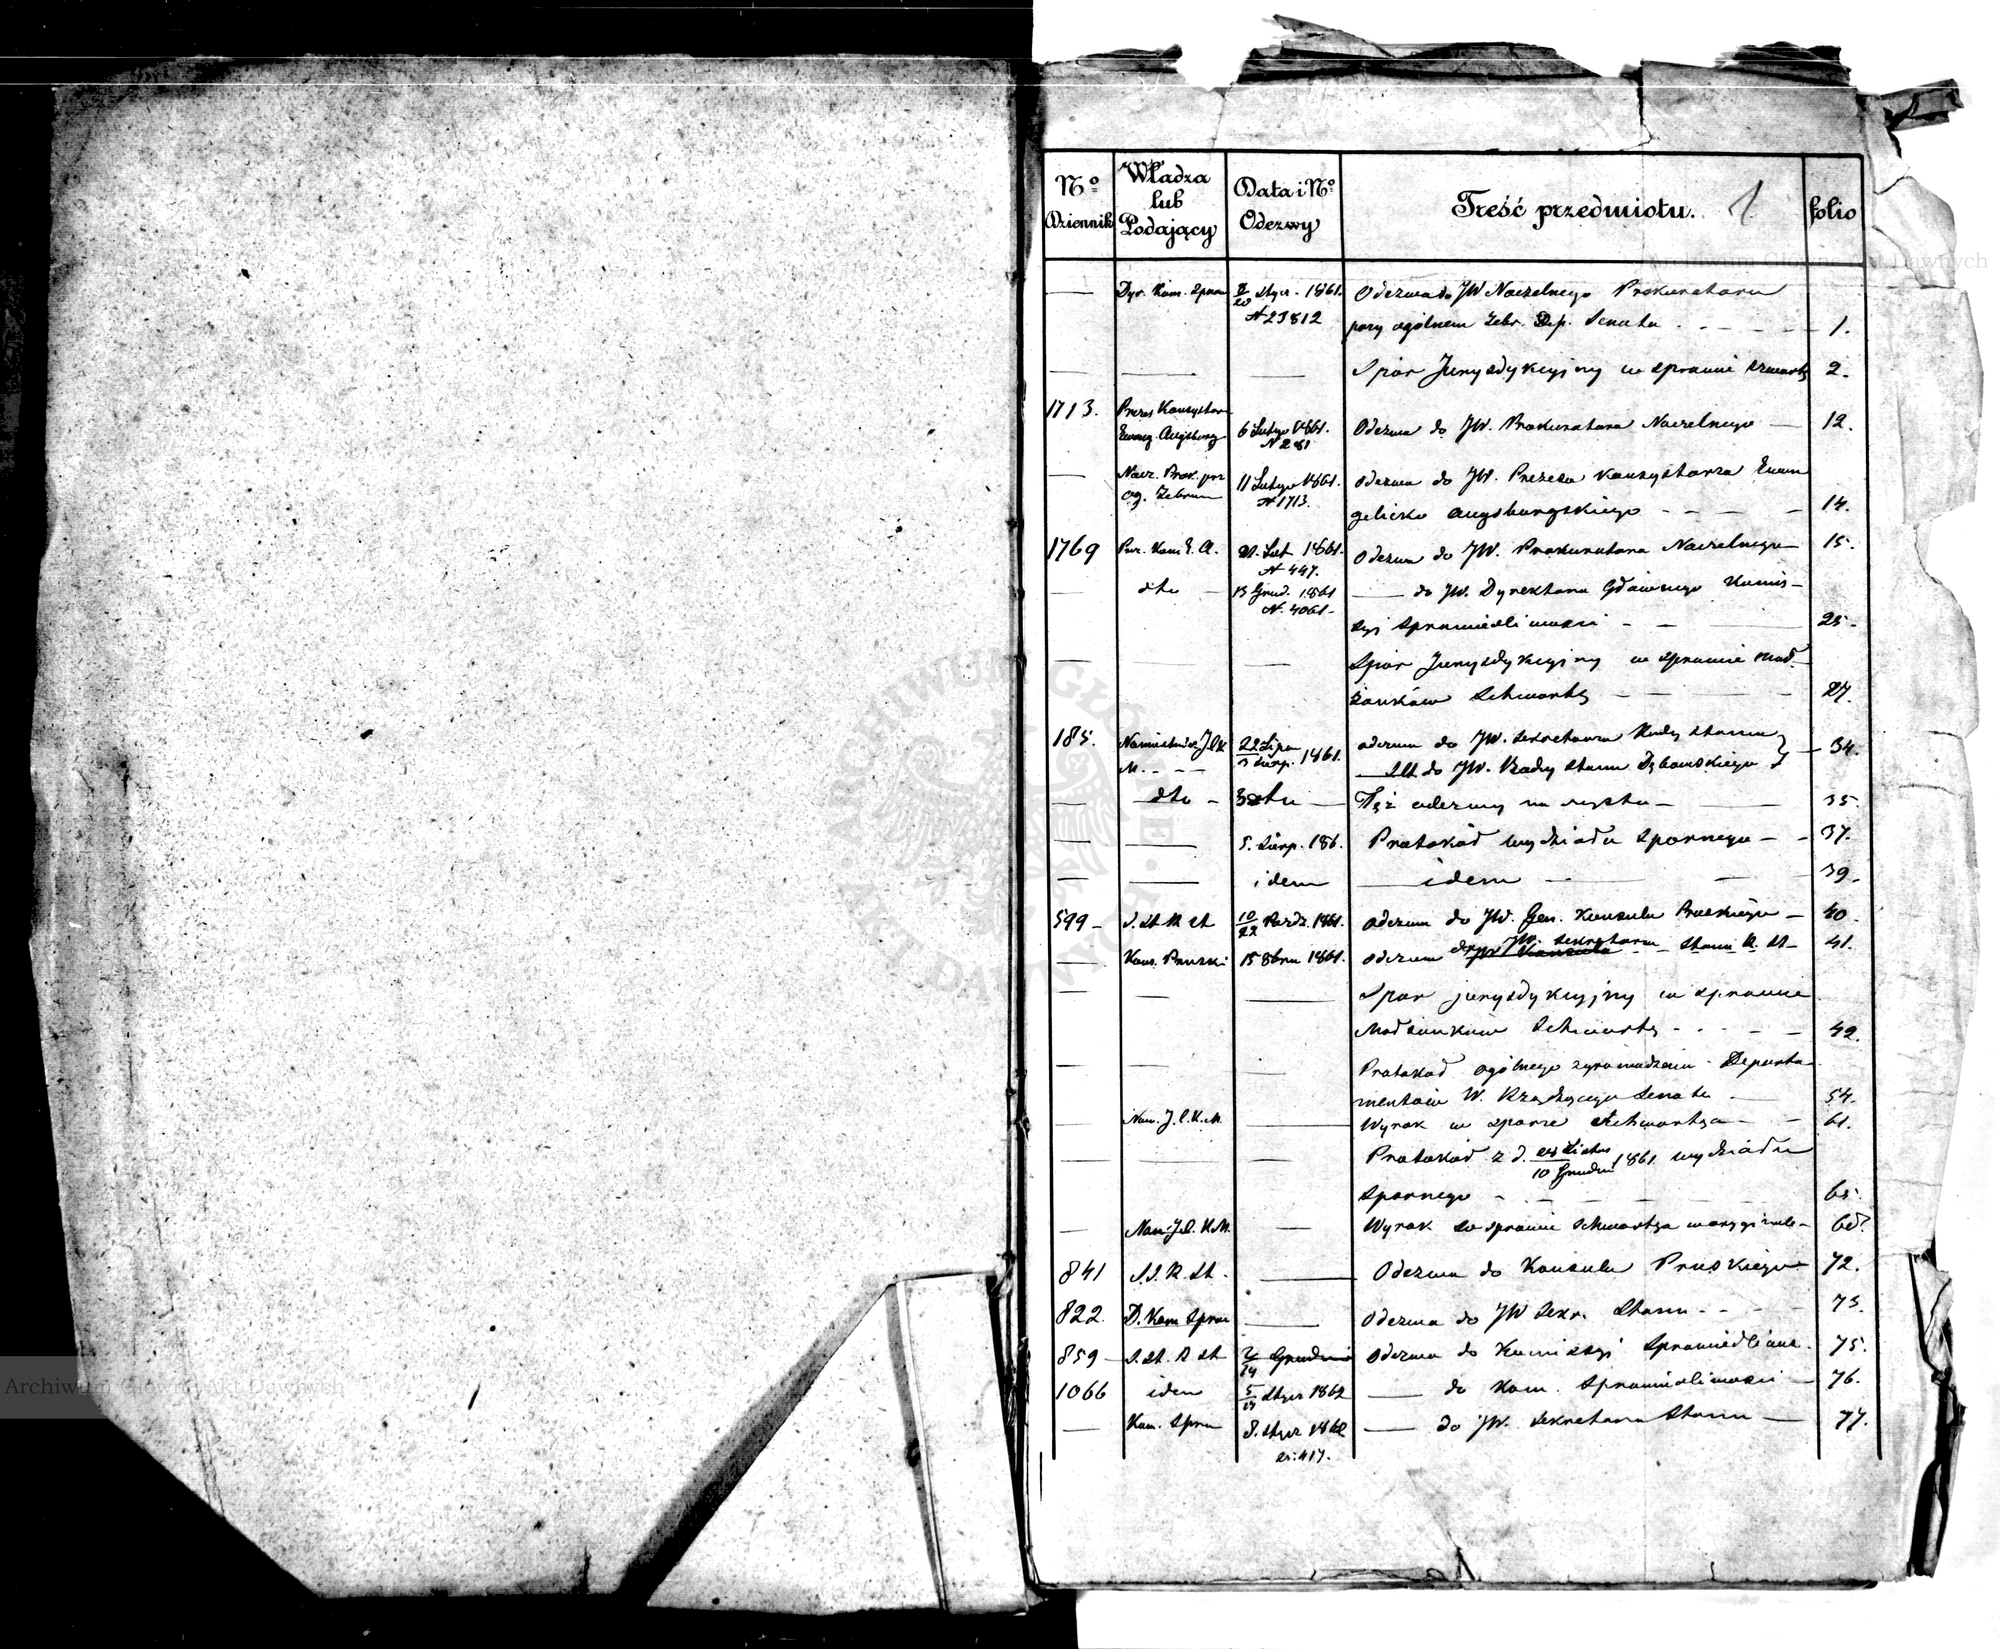 № Dziennik | Władza lub Podający | Data i № Odezwy | Treść przedmiotu. 1 | folio
— | Dyr. Kom. Spraw | 8/20 Stycz. 1861. | Odezwa do JW Naczelnego Prokuratora
N 25812 | przy ogólnem Zebr. Dep. Senatu | 1.
— | — | — | Spór Jurysdykcyjny w sprawie Szwartz | 2.
1713. | Prezes Konsystorz
Ewang. Augsburg | 6 Lutego 1861. N 281 | Odezwa do JW. Prokuratora Naczelnego — | 12.
— | Nacz. Prok. prz | 11 Lutego 1861. | Odezwa do JW. Prezesa Konsystorza Ewan
og. Zebraniu | N 1713. | gelicko Augsburgskiego | 14.
1769 | Prez. Kons E. A. | 21. Lut 1861. N 447. | Odezwa do JW. Prokuratora Naczelnego | 15.
— | dto | 13 Grud. 1861 N. 4061 | — do JW. Dyrektora Głównego Komis-
syi Sprawiedliwości | 25
— | — | — | Spór Jurysdykcyjny w sprawie Mał-
żonków Schwartz | 27.
185. | Namiestnik J C K | 22 Lipca | odezwa do JW. Sekretarza Rady Stanu
M. | 3 Sierp. 1861. | do JW. Rady Stanu Dębowskiego | 34.
— | dto | dto | Też odezwy na | 35.
— | — | 5. Sierp. 186. | Protokół wydziału Spornego | 37.
— | — | idem | idem | 39.
599 | S. St. R St | 10/22 Paźdz. 1861. | Odezwa do JW. Gen. Konsula Pruskiego | 40.
— | Kons. Pruski | 15 8bra 1861. | Odezwa do JW. Sekretarza Stanu R. St | 41.
— | — | — | Spór jurysdykcyjny w sprawie
Małżonków Schwartz | 42.
— | — | — | Protokół ogólnego zgromadzenia Departa
mentów W. Rządzącego Senatu | 54.
— | Nam. J. C. K. M. | — | Wyrok w sporze Schwartza | 61.
— | — | — | Protokół z d. 28 Listop/10 Grudnia 1861 wydziału
Spornego | 65.
— | Nam J. C. K M. | — | Wyrok w sprawie Schwartza w oryginale | 68.
841 | S. S. R. St. | — | Odezwa do Konsula Pruskiego | 72.
822. | D. Kom Spraw | — | Odezwa do JW Sekr. Stanu | 73.
859 | S. St. R St | 2/14 Grudnia | Odezwa do Komissyi Sprawiedliwos. | 75.
1066 | idem | 5/17 Stycz 1862 | — do Kom. Sprawiedliwości | 76.
— | Kom. Spraw | 8. Stycz 1862 | — do JW. Sekretarza Stanu — | 77.
417.
Archiwum Główne Akt Dawnych
ARCHIWUM GŁÓWNE • AKT DAWNYCH •
Archiwum Główne Akt Dawnych